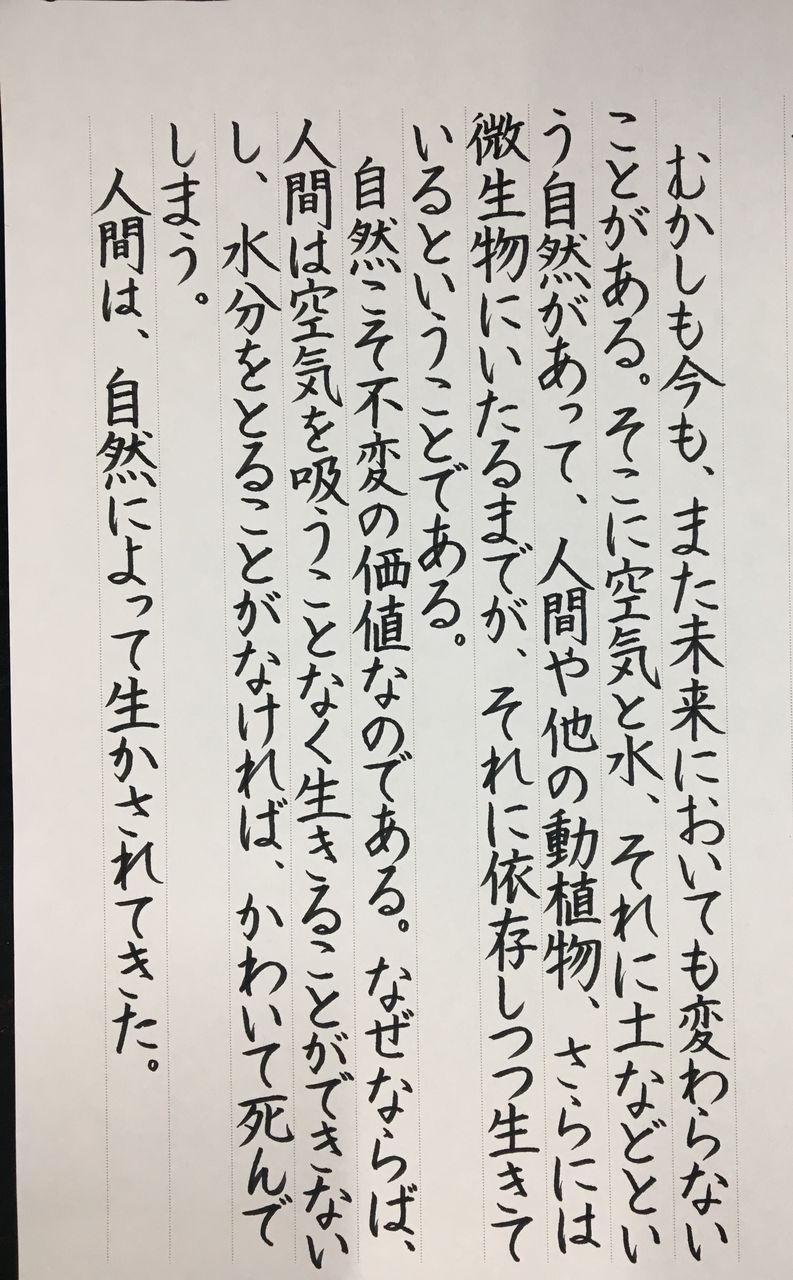 むかしも今も、また未来においても変わらない
ことがある。そこに空気と水、それに土などとい
う自然があって、人間や他の動植物、さらには
微生物にいたるまでが、それに依存しつつ生きて
いるということである。
自然こそ不変の価値なのである。なぜならば、
人間は空気を吸うことなく生きることができない
し、水分をとることがなければ、かわいて死んで
しまう。
人間は、自然によって生かされてきた。